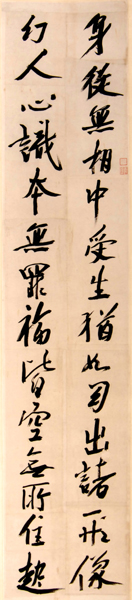 身從無相中受生猶如幻出諸形像
幻人心識本無罪福皆空無所住